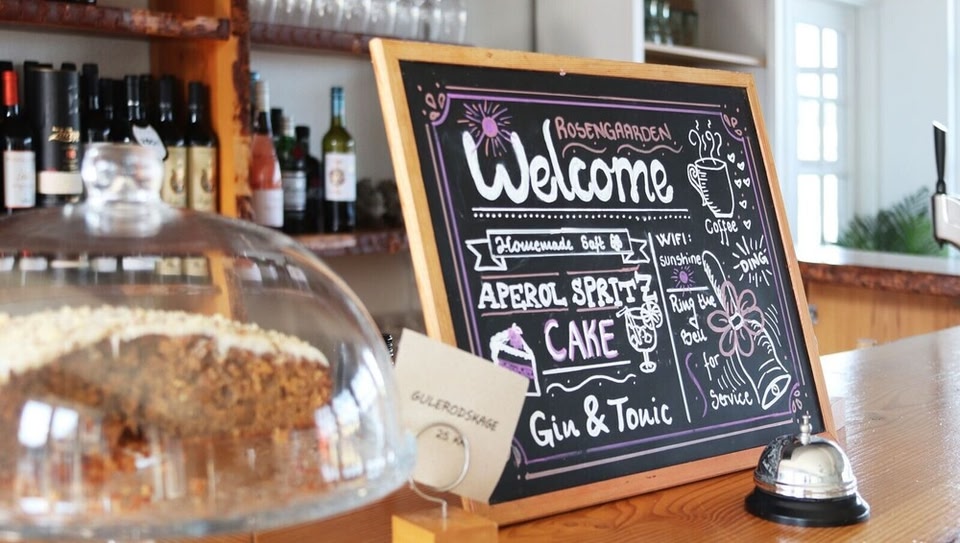 ROSENGAARDEN
Welcome
Homemade Saft
APEROL SPRITZ
CAKE
Gin & Tonic
Coffee
WIFI:
sunshine
DING
Ring the
Bell
for
Service
GULERODSKAGE
25 Kr